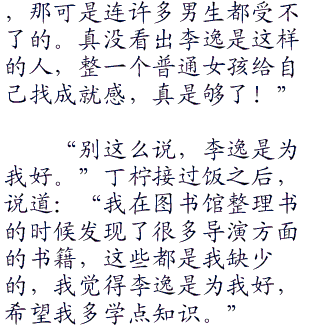 ，那可是连许多男生都受不
了的。真没看出李逸是这样
的人，整一个普通女孩给自
己找成就感，真是够了！”
“别这么说，李逸是为
我好。”丁柠接过饭之后，
说道：“我在图书馆整理书
的时候发现了很多导演方面
的书籍，这些都是我缺少
的，我觉得李逸是为我好，
希望我多学点知识。”